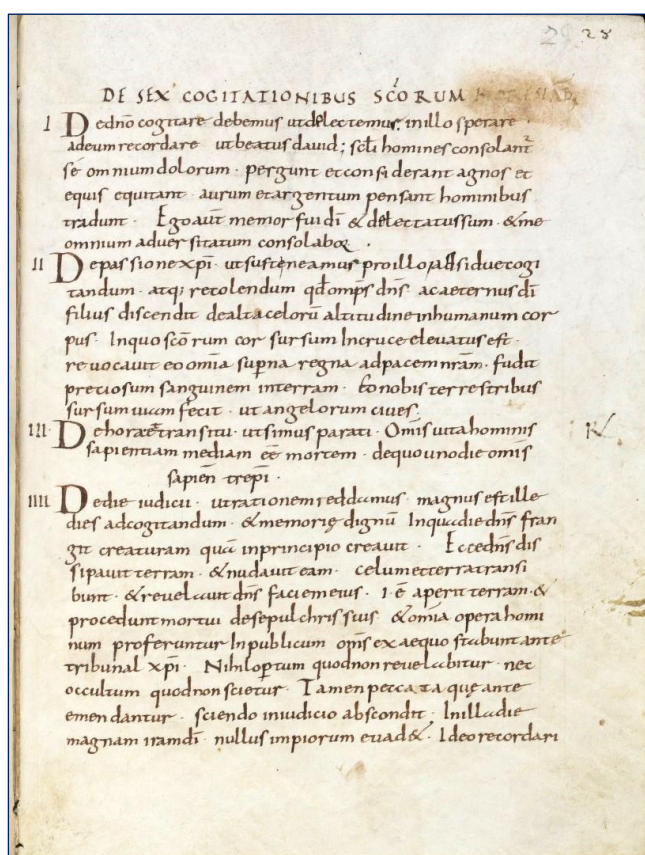 29 28
DE SEX COGITATIONIBUS SC̄ORUM
I Dedn̄o cogitare debemus utdelectemur. inillo sperare
adeum recordare utbeatus david; sc̄li homines consolant̄
sē omnium dolorum · pergunt etconsiderant agnos et
equis equitant · aurum etargentum pensant hominibus
tradunt · Ego aut̄ memor fui dī & delectatussum · &me
omnium adversitatum consolabor ·
II Depassione xp̄i · utsusteneamus proillo, Adsidue cogi
tandum · atq; retolendum qd̄ omp̄s dn̄s ac aeternus dī
filius discendit dealta celorū altitudine inhumanum cor
pus · Inquo sc̄orum cor sursum Incruce elevatus est ·
revocavit eo om̄ia sup̄na regna adpacem nr̄am · fudit
preciosum sanguinem interram · & nobis terrestribus
sursum viam fecit · ut angelorum cives.
III · De hora & transitu · utsimus parati · Om̄is vita hominis
sapientiam mediam eē mortem · dequo uno die om̄is
sapien̄ trepi ·
IIII Dedie iudicii · utrationem reddamus · magnus est ille
dies adcogitandum · &memorię dignū Inqua die dn̄s fran
git creaturam quā inprincipio creavit · Ecce dn̄s dis
sipavit terram · &nudavit eam · celum etterra transi
bunt · &revelavit dn̄s faciem eius · I · ē aperit terram · &
procedunt mortui desepulchris suis · &om̄ia opera homi
num proferuntur Inpublicum om̄s ex aequo stabunt ante
tribunal xp̄i · Nihil opertum quod non revelabitur · nec
occultum quod non scietur · Tamen peccata quę ante
emendantur · sciendo iniudicio abscondit · Inilla die
magnam iram dī · nullus impiorum evad& · Ideo recordari